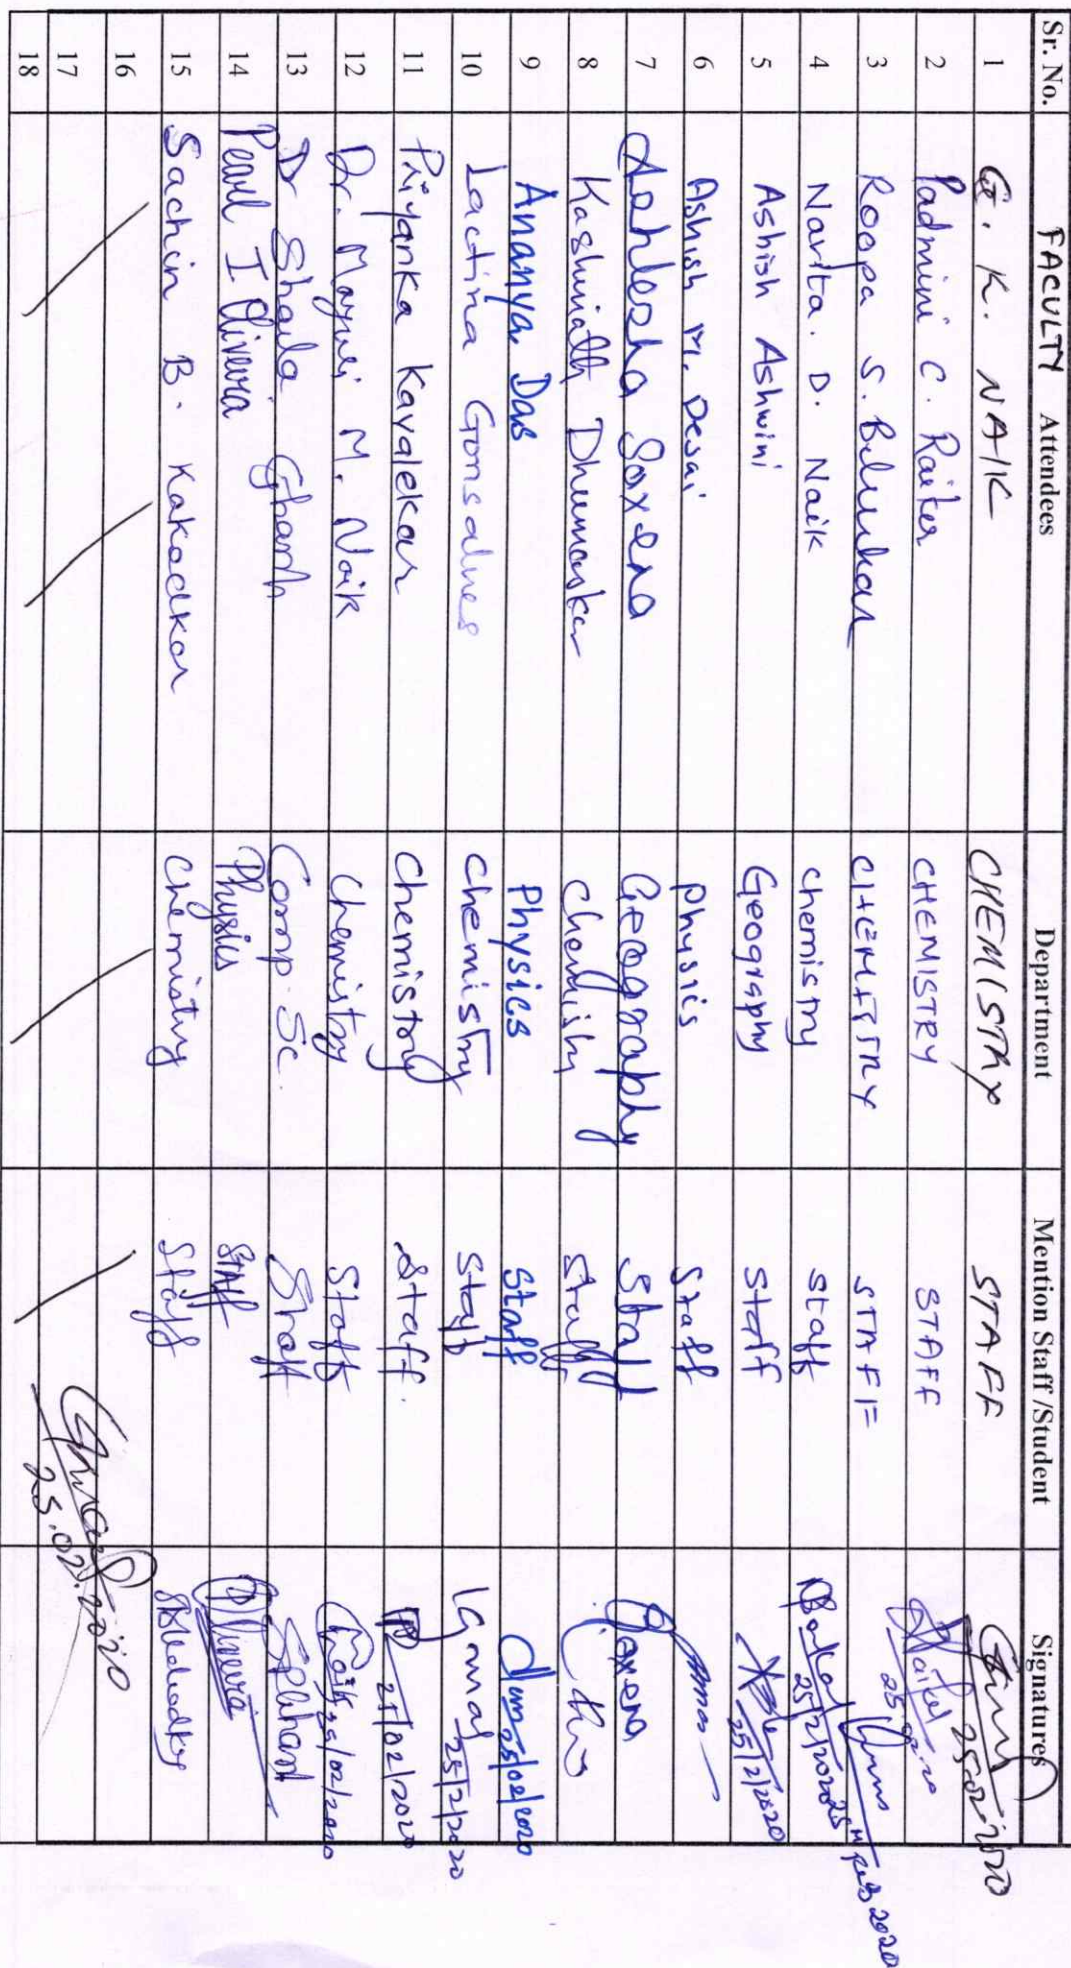 Sr. No. FACULTY Attendees Department Mention Staff /Student Signatures
1 G. K. NAIK CHEMISTRY STAFF 25.02.2020
2 Padmini C. Raiker CHEMISTRY STAFF 25.02.20
3 Roopa S. CHEMISTRY STAFF 25th Feb 2020
4 Narita. D. Naik chemistry staff 25/2/2020
5 Ashish Ashwini Geography Staff 25/2/2020
6 Ashish M. Desai Physics Staff
7 Ashlesha Saxena Geography Staff Saxena
8 Kashinath Chemistry Staff
9 Ananya Das Physics Staff 25/02/2020
10 Lactina Gonsalves Chemistry Staff 25/2/2020
11 Priyanka Kavalekar Chemistry Staff. 25/02/2020
12 Dr. Mayuri M. Naik Chemistry Staff Naik 25/02/2020
13 Dr Shaila Ghanti Comp. Sc. Staff
14 Pearl I Oliveira Physics STAFF Oliveira
15 Sachin B. Kakodkar Chemistry Staff
16
17
18
25.02.2020